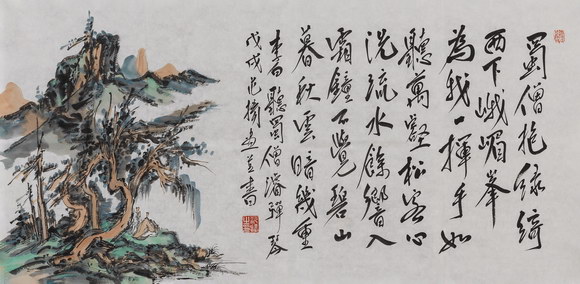 蜀僧抱綠綺
西下峨嵋峯
為我一揮手如
聽萬壑松客心
洗流水餘響入
霜鐘不覺碧山
暮秋雲暗幾重
李白聽蜀僧濬彈琴
戊戌 畫並書